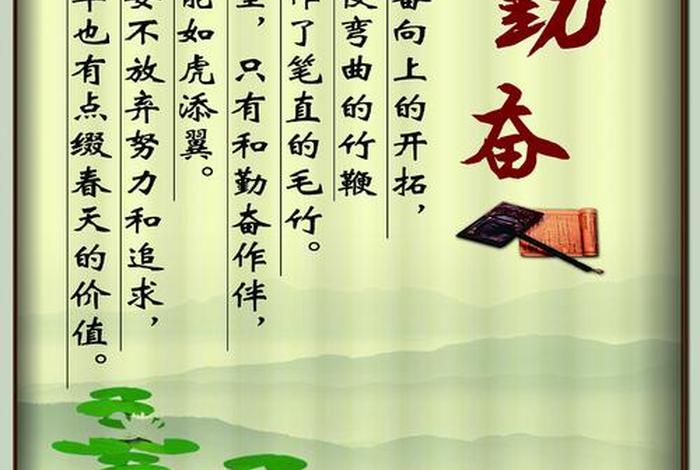 勤奋
奋向上的开拓，
使弯曲的竹鞭
作了笔直的毛竹。
，只有和勤奋作伴，
能如虎添翼。
要不放弃努力和追求，
草也有点缀春天的价值。